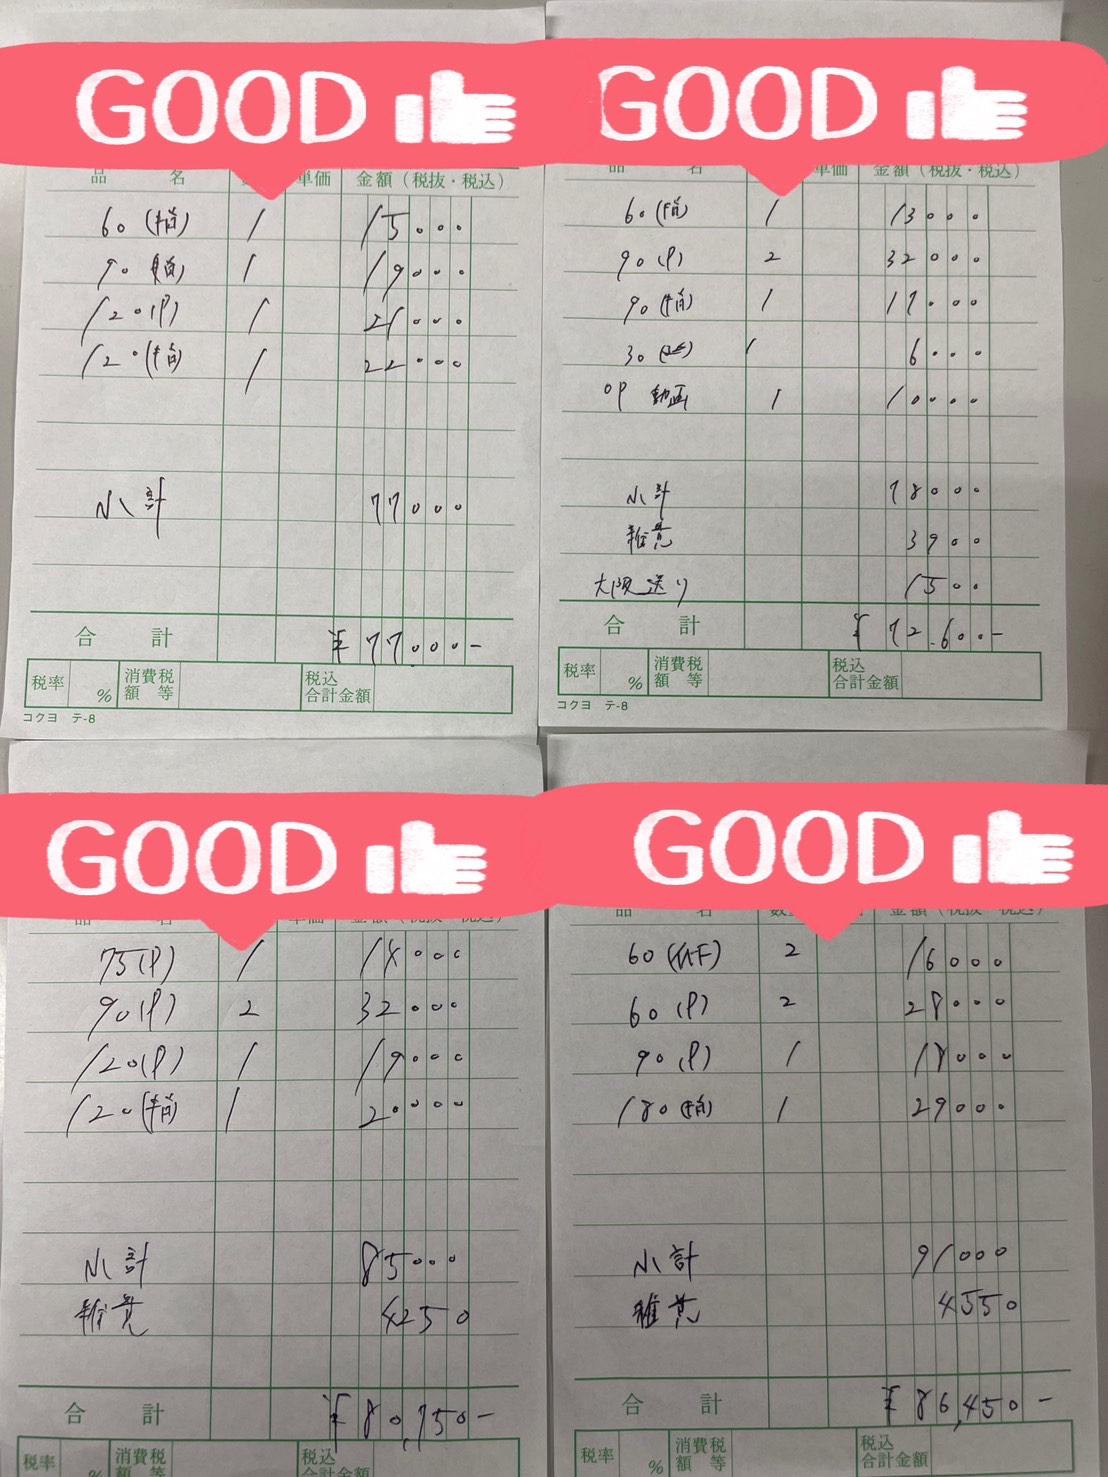 GOOD
品 名 単価 金額（税抜・税込）
60 (指) 1 15000
90 (指) 1 19000
120(P) 1 21000
120(指) 1 22000
小計 77000
合 計 ¥77.000-
税率 % 消費税額等 税込合計金額
コクヨ テ-8
GOOD
品 名 単価 金額（税抜・税込）
60(指) 1 13000
90(P) 2 32000
90(指) 1 17000
30 1 6000
OP 動画 1 10000
小計 78000
雑費 3900
大阪送り 1500
合 計 ¥72.600-
税率 % 消費税額等 税込合計金額
コクヨ テ-8
GOOD
品 名 単価 金額（税抜・税込）
75(P) 1 14000
90(P) 2 32000
120(P) 1 19000
120(指) 1 20000
小計 85000
雑費 4250
合 計 ¥80,750-
税率 % 消費税額等 税込合計金額
GOOD
品 名 数 金額（税抜・税込）
60 2 16000
60 (P) 2 28000
90 (P) 1 18000
180 (指) 1 29000
小計 91000
雑費 4550
合 計 ¥86,450-
税率 % 消費税額等 税込合計金額